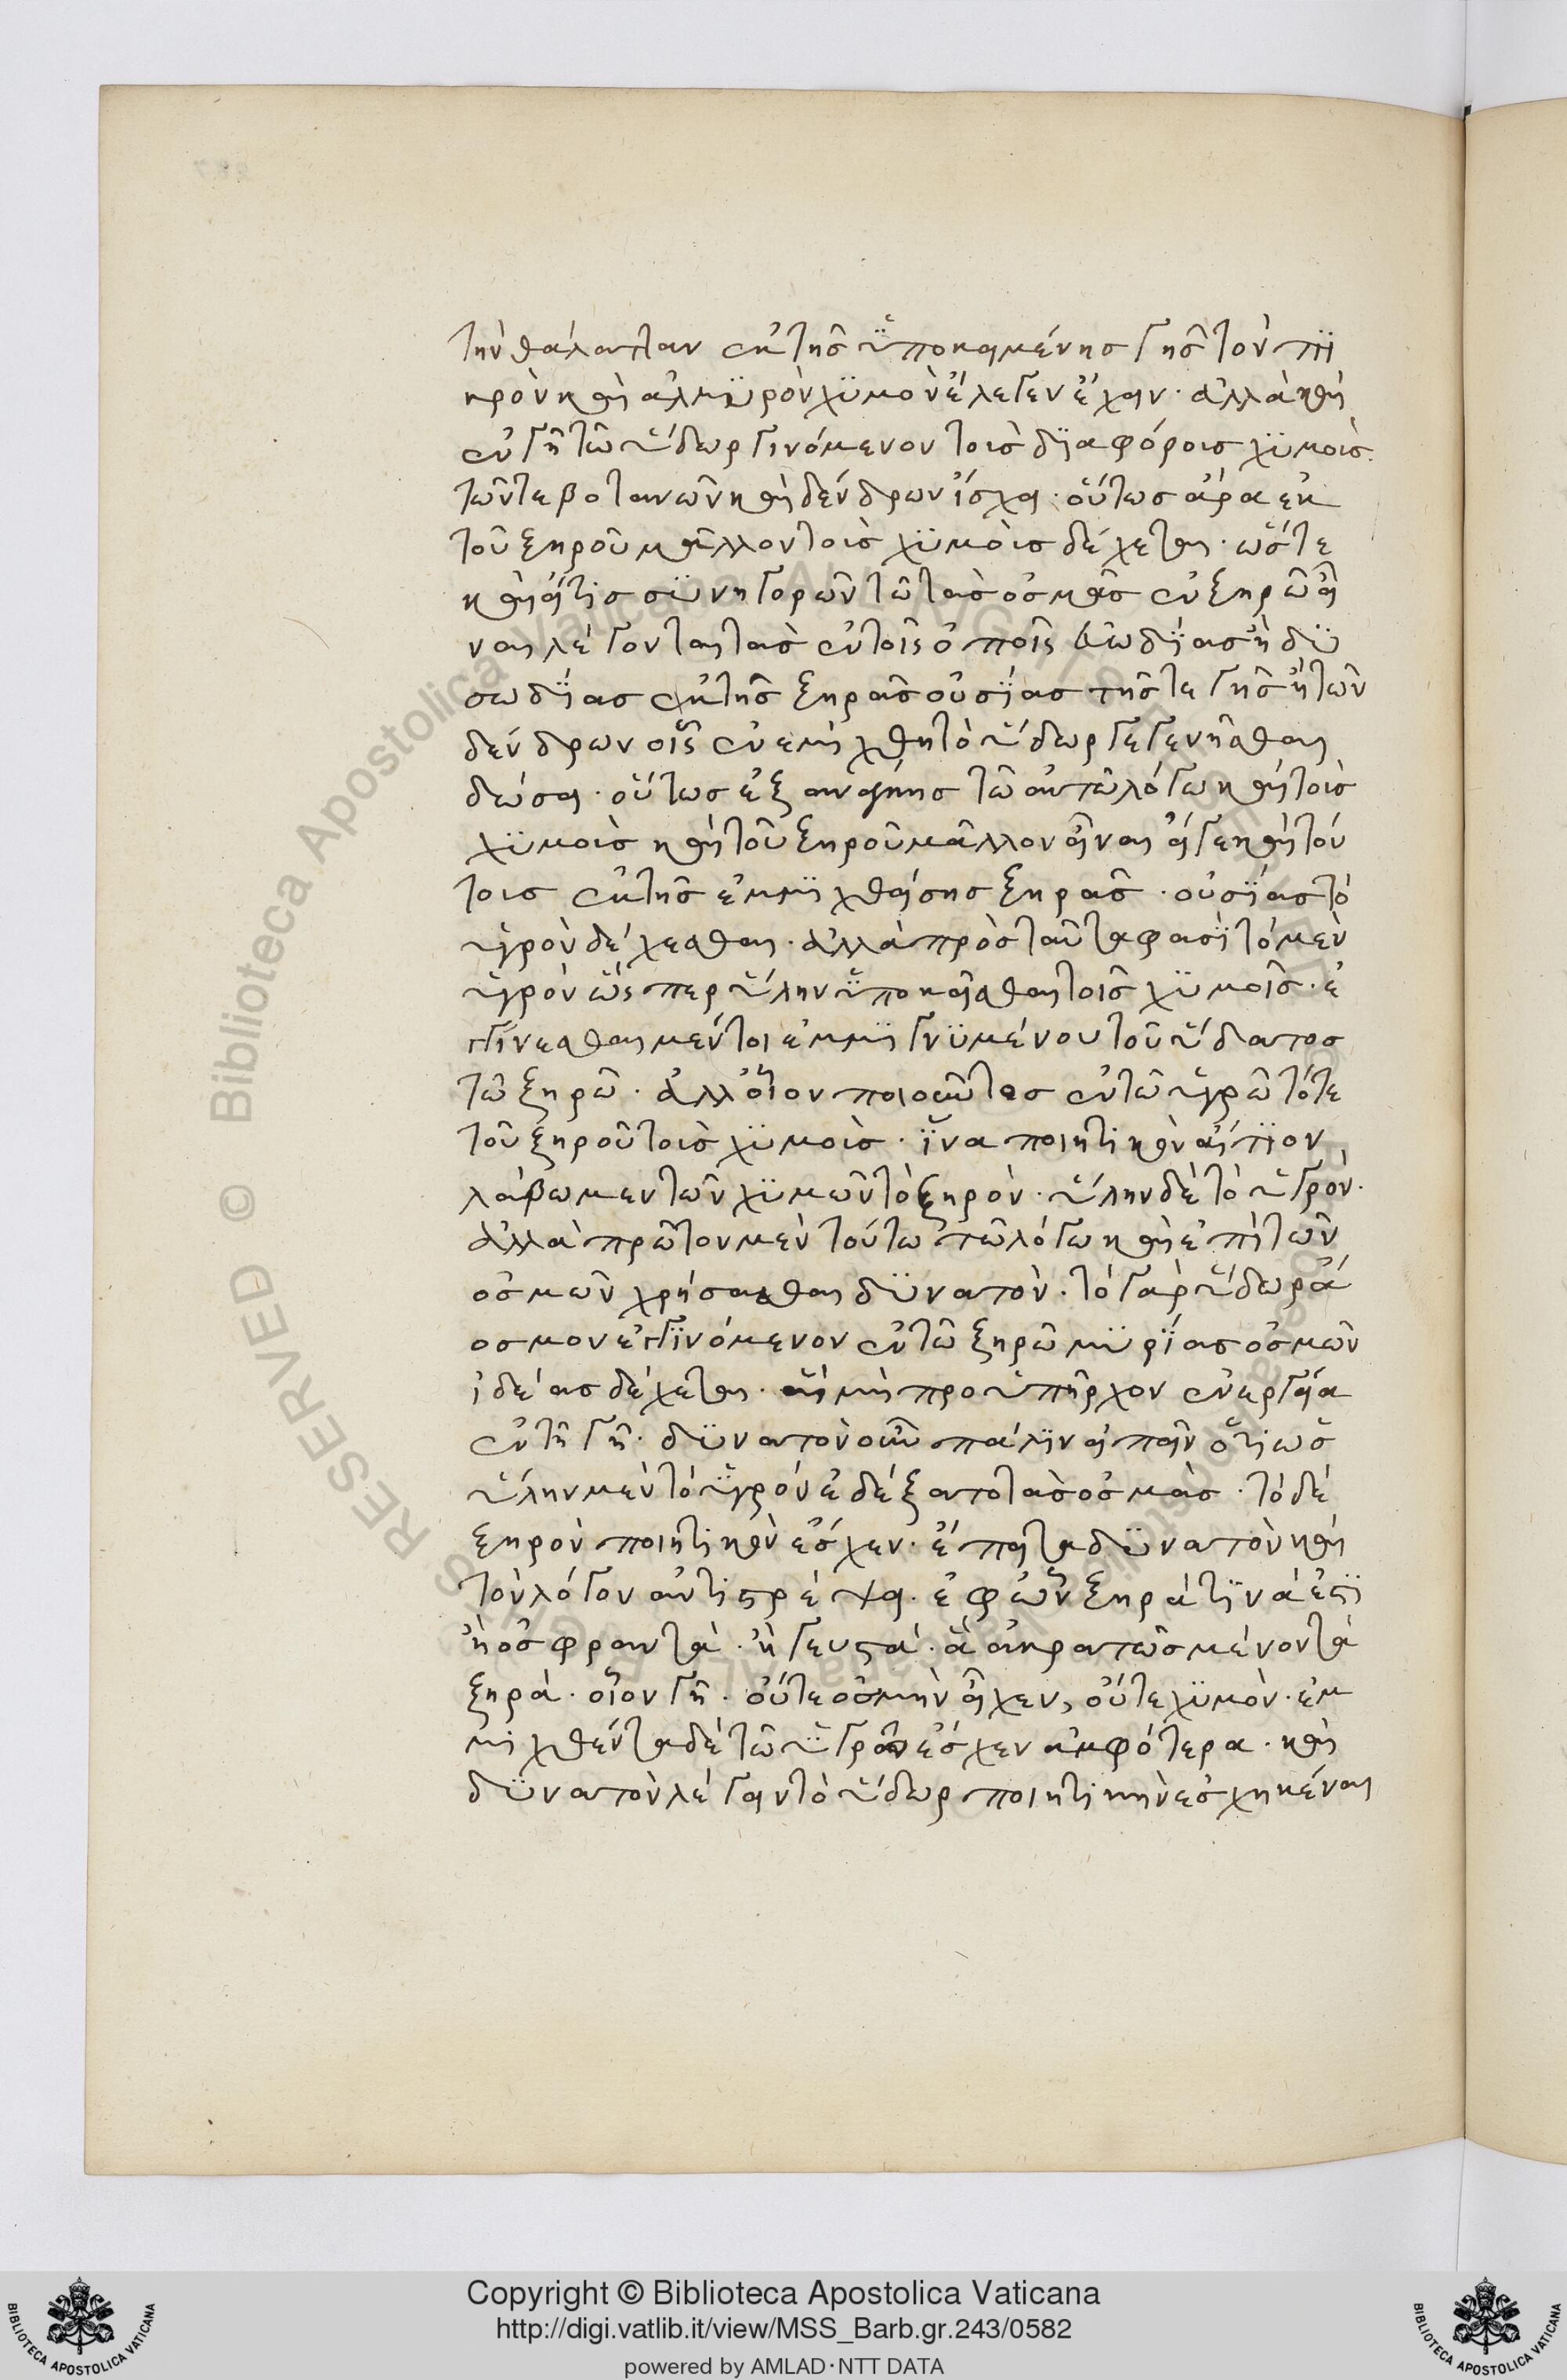 τὴν θάλατταν ἐκ τῆς ὑποκειμένης γῆς τὸν πι
κρὸν καὶ ἁλμυρὸν χυμὸν ἔλεγεν ἔχειν· ἀλλὰ καὶ
ἐν γῆ τῶ ὕδωρ γινόμενον τοὺς διαφόροις χυμοὺς
τῶν τε βοτανῶν καὶ δένδρων ἴσχει· οὕτως ἄρα ἐκ
τοῦ ξηροῦ μᾶλλον τοὺς χυμοὺς δέχεται· ὥστε
καὶ εἴ τις συνηγορῶν τῶ τὰς ὀσμὰς ἐν ξηρῶ εἶ
ναι λέγοντι τὰς ἐν τοῖς ὀποῖς εὐωδίας ἢ δυ
σωδίας ἐκ τῆς ξηρᾶς οὐσίας τῆς τε γῆς ἢ τῶν
δένδρων οἷς ἐνεμίχθη τὸ ὕδωρ γεγενῆσθαι
δώσει· οὕτως ἐξ ἀνάγκης τῶ αὐτῶ λόγω καὶ τοὺς
χυμοὺς καὶ τοῦ ξηροῦ μᾶλλον εἶναι εἴγε καὶ τού
τοις ἐκ τῆς ἐμμιχθείσης ξηρᾶς · οὐσίας τὸ
ὑγρὸν δέχεσθαι· ἀλλὰ πρὸς ταῦτα φασὶ τὸ μὲν
ὑγρὸν ὥσπερ ὕλην ὑποκεῖσθαι τοῖς χυμοῖς· ἐγ
γίνεσθαι μέντοι ἐμμιγνυμένου τοῦ ὕδατος
τῶ ξηρῶ· ἀλλοῖον ποιοῦντος ἐν τῶ ὑγρῶ τότε
τοῦ ξηροῦ τοὺς χυμοὺς· ἵνα ποιητικὸν αἴτιον
λάβωμεν τῶν χυμῶν τὸ ξηρὸν· ὕλην δὲ τὸ ὑγρὸν·
ἀλλὰ πρῶτον μὲν τούτω τῶ λόγω καὶ ἐπὶ τῶν
ὀσμῶν χρήσασθαι δυνατὸν· τὸ γὰρ ὕδωρ ἄ
οσμον ἐγγινόμενον ἐν τῶ ξηρῶ μυρίας ὀσμῶν
ἰδέας δέχεται· αἳ μὴ προϋπῆρχον ἐνεργεία
ἐν τῆ γῆ· δυνατὸν οὖν πάλιν εἰπεῖν ὅτι ὡς
ὕλην μὲν τὸ ὑγρὸν ἐδέξατο τὰς ὀσμὰς· τὸ δὲ
ξηρὸν ποιητικὸν ἔσχεν· ἔπειτα δυνατὸν καὶ
τὸν λόγον ἀντιστρέψαι· ἐφ' ὧν ξηρά τινά ἐστι
ἢ ὀσφραντὰ· ἢ γευστὰ· ἃ ἀκρατῶς μένοντα
ξηρὰ· οἷον γῆ· οὔτε ὀσμὴν εἶχεν, οὔτε χυμὸν· ἐμ
μιχθέντα δὲ τῶ ὑγρῶ ἔσχεν ἀμφότερα· καὶ
δυνατὸν λέγειν τὸ ὕδωρ ποιητικὴν ἐσχηκέναι
Copyright © Biblioteca Apostolica Vaticana
http://digi.vatlib.it/view/MSS_Barb.gr.243/0582
powered by AMLAD·NTT DATA